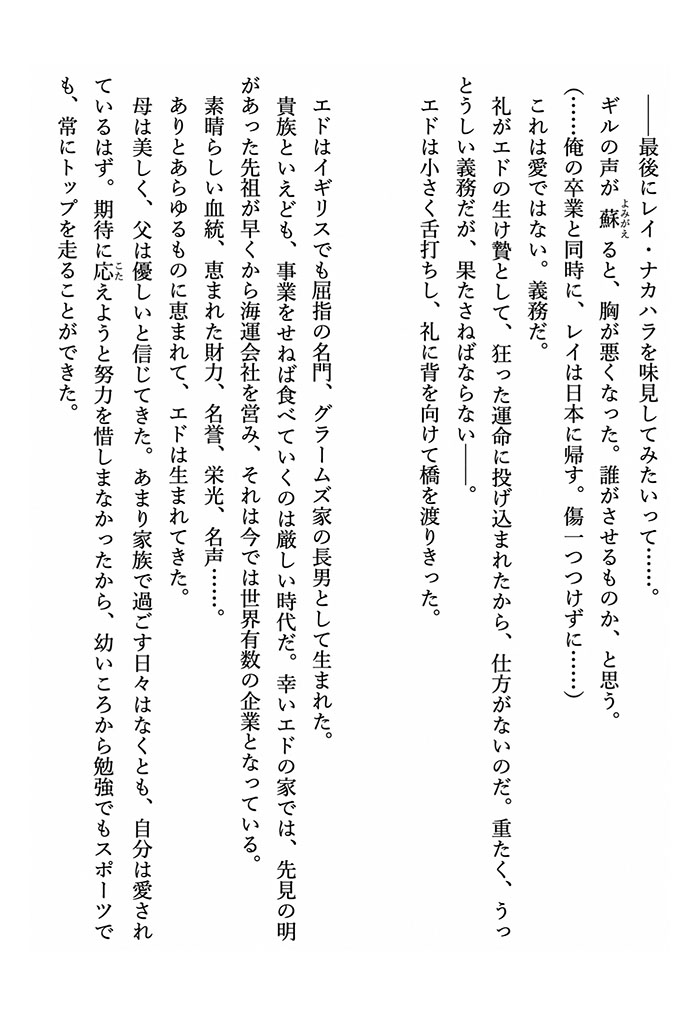 ――最後にレイ・ナカハラを味見してみたいって……。
ギルの声が蘇よみがえると、胸が悪くなった。誰がさせるものか、と思う。
(……俺の卒業と同時に、レイは日本に帰す。傷一つつけずに……)
これは愛ではない。義務だ。
礼がエドの生け贄として、狂った運命に投げ込まれたから、仕方がないのだ。重たく、うっ
とうしい義務だが、果たさねばならない――。
エドは小さく舌打ちし、礼に背を向けて橋を渡りきった。
エドはイギリスでも屈指の名門、グラームズ家の長男として生まれた。
貴族といえども、事業をせねば食べていくのは厳しい時代だ。幸いエドの家では、先見の明
があった先祖が早くから海運会社を営み、それは今では世界有数の企業となっている。
素晴らしい血統、恵まれた財力、名誉、栄光、名声……。
ありとあらゆるものに恵まれて、エドは生まれてきた。
母は美しく、父は優しいと信じてきた。あまり家族で過ごす日々はなくとも、自分は愛され
ているはず。期待に応こたえようと努力を惜しまなかったから、幼いころから勉強でもスポーツで
も、常にトップを走ることができた。